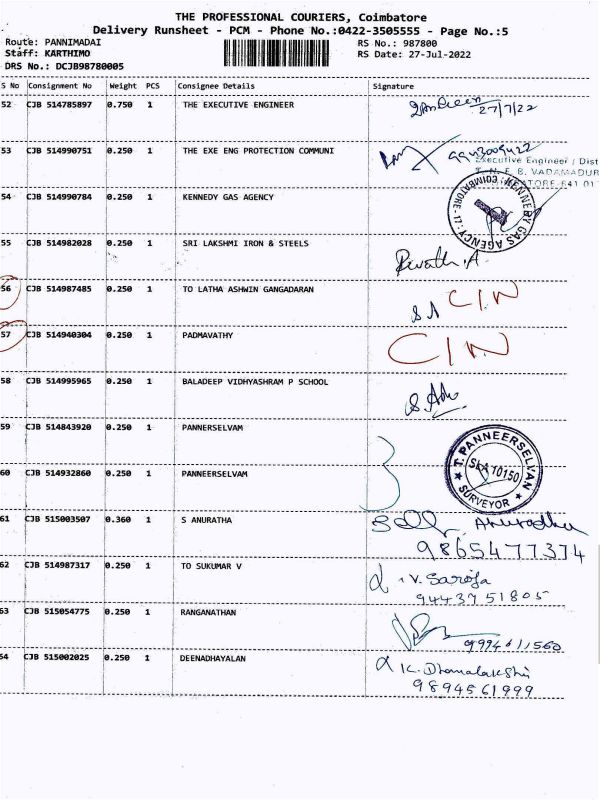 THE PROFESSIONAL COURIERS, Coimbatore
Delivery Runsheet - PCM - Phone No.:0422-3505555 - Page No.:5
Route: PANNIMADAI RS No.: 987800
Staff: KARTHIMO RS Date: 27-Jul-2022
DRS No.: DCJB98780005
S No Consignment No Weight PCS Consignee Details Signature
52 CJB 514785897 0.750 1 THE EXECUTIVE ENGINEER
27/7/22
53 CJB 514990751 0.250 1 THE EXE ENG PROTECTION COMMUNI
9943009422
Executive Engineer / Dist
T. N. E. B. VADAMADUR
COIMBATORE-641 01
54 CJB 514990784 0.250 1 KENNEDY GAS AGENCY
KENNEDY GAS AGENCY COIMBATORE-17
55 CJB 514982028 0.250 1 SRI LAKSHMI IRON & STEELS
Revathi.A
56 CJB 514987485 0.250 1 TO LATHA ASHWIN GANGADARAN
SA CIN
57 CJB 514940304 0.250 1 PADMAVATHY
CIN
58 CJB 514995965 0.250 1 BALADEEP VIDHYASHRAM P SCHOOL
59 CJB 514843920 0.250 1 PANNERSELVAM
T. PANNEERSELVAN
SLA 10150
SURVEYOR
60 CJB 514932860 0.250 1 PANNEERSELVAM
61 CJB 515003507 0.360 1 S ANURATHA
Anuradha
9865477374
62 CJB 514987317 0.250 1 TO SUKUMAR V
V. Saroja
9443751805
63 CJB 515054775 0.250 1 RANGANATHAN
9994611560
64 CJB 515002025 0.250 1 DEENADHAYALAN
K. Dhanalakshmi
9894561999